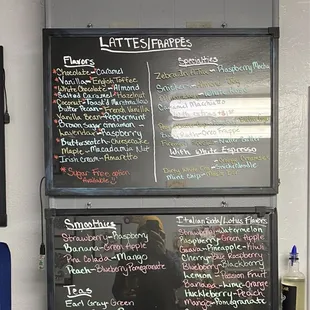 LATTES/FRAPPES
Flavors
Chocolate - Caramel
Vanilla - English Toffee
White Chocolate - Almond
Salted Caramel - Hazelnut
Coconut - Toast'd Marshmallow
Butter Pecan - French Vanilla
Vanilla Bean - Peppermint
Brown Sugar Cinnamon
Lavender - Raspberry
Butterscotch - Cheesecake
Maple - Macadamia Nut
Irish Cream - Amaretto
* Sugar Free option
Available
Specialties
Raspberry Mocha
Caramel Macchiato
Oreo Frappe
With White Espresso
Snickerdoodle
Smoothies
Strawberry - Raspberry
Banana - Green Apple
Pina Colada - Mango
Peach - Blueberry Pomegranate
Teas
Earl Gray Green
Italian Soda/Lotus Frappe
Strawberry - Watermelon
Raspberry - Green Apple
Guava - Pineapple - Kiwi
Cherry - Blue Raspberry
Blueberry - Blackberry
Lemon - Passion Fruit
Banana - Lime - Orange
Huckleberry - Peach
Mango - Pomegranate